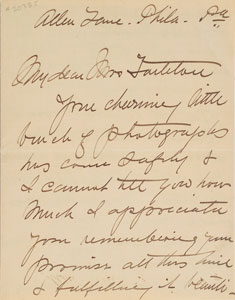 Allen Lane. Phila. Pa
My dear Mrs
Your charming little
bunch of photographs
has come safely &
I cannot tell you how
much I appreciate
your remembering your
promise all this time
& fulfilling it